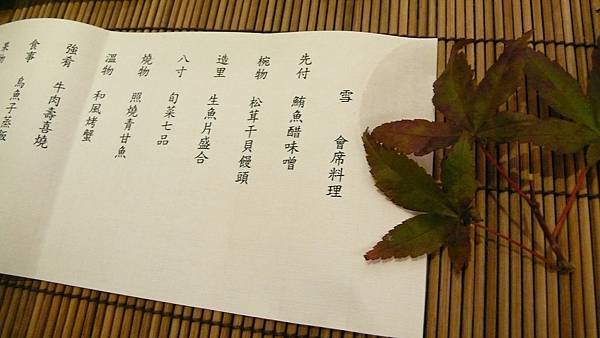 雪 會席料理
先付 鮪魚醋味噌
椀物 松茸干貝饅頭
造里 生魚片盛合
八寸 旬菜七品
燒物 照燒青甘魚
溫物 和風烤蟹
強肴 牛肉壽喜燒
食事 烏魚子蒸飯
果物